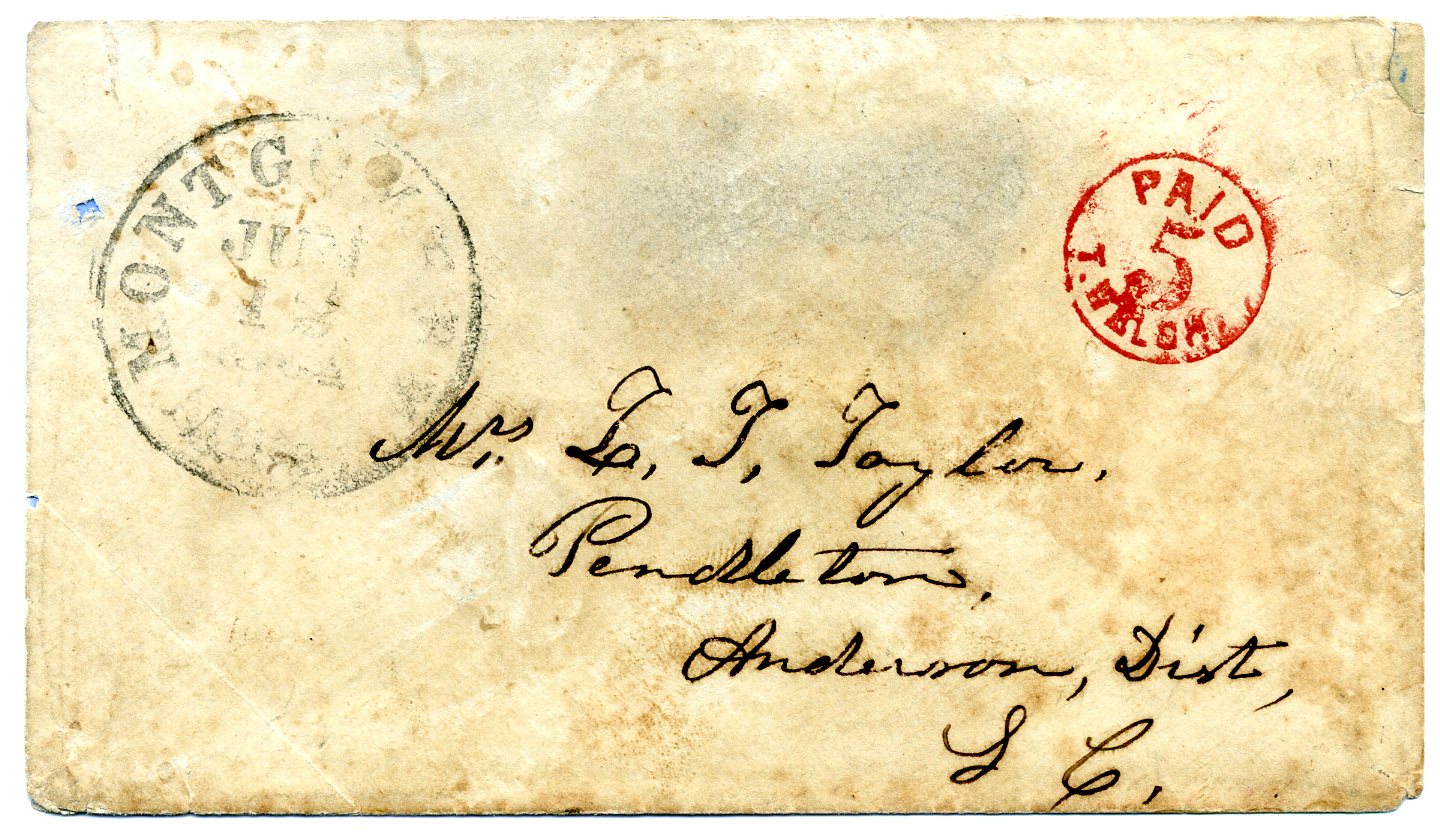 MONTGOMERY
JUN
PAID
5
T. WELSH
Mrs. L. T. Taylor,
Pendleton,
Anderson, Dist,
S C.